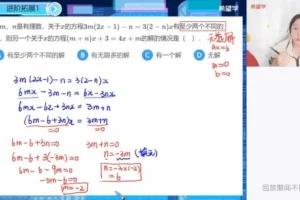 进阶拓展1
希望学
希望学
m、n是有理数，关于x的方程3m(2x－1)－n＝3(2－n)x有至少两个不同的
，则另一个关于x的方程(m＋n)x＋3＝4x＋m的解的情况是（ ）.
有至少两个不同的解
有无限多的解
有一个解
无解
无穷解
ax=b
a=0
b=0
3m(2x-1)-n=3(2-n)x
6mx-3m-n=6x-3nx
6mx-6x+3nx=3m+n
(6m-6+3n)x=3m+n
=0
=0
6m-6+3n=0
3m+n=0
6m-6+3(-3m)=0
n=-3m
6m-6-9m=0
n=-3×(-2)
=6
-3m-6=0
m=-2